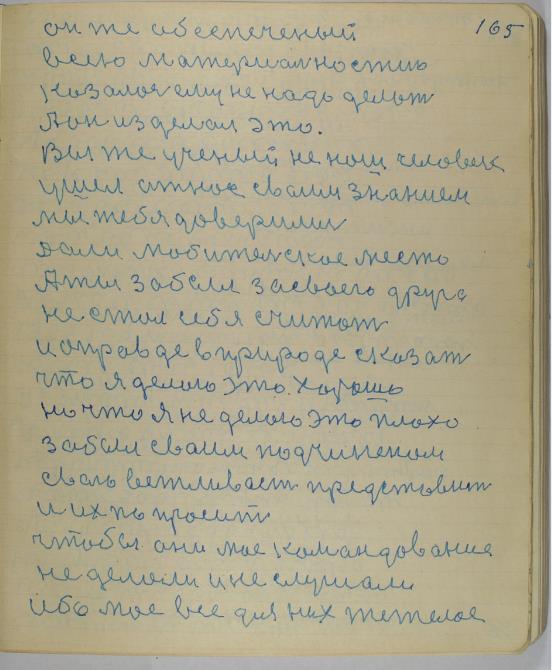 165
он же обеспеченый
всею материалностию
казалоя ему не надо делат
А он изделал это.
Вы же ученый не наш человек
ушел атнас своим знанием
мы тебя доверили
дали любителское место
А ты забыл засвоего друга
не стал себя считат
и оправде в природе сказат
что я делаю это. хорошо
но что я не делаю это плохо
забыл своим подчиненом
сваю вежливаст представит
и их по просит
чтобы они мое командование
не делали и не слушали
ибо мое все для них тежелое